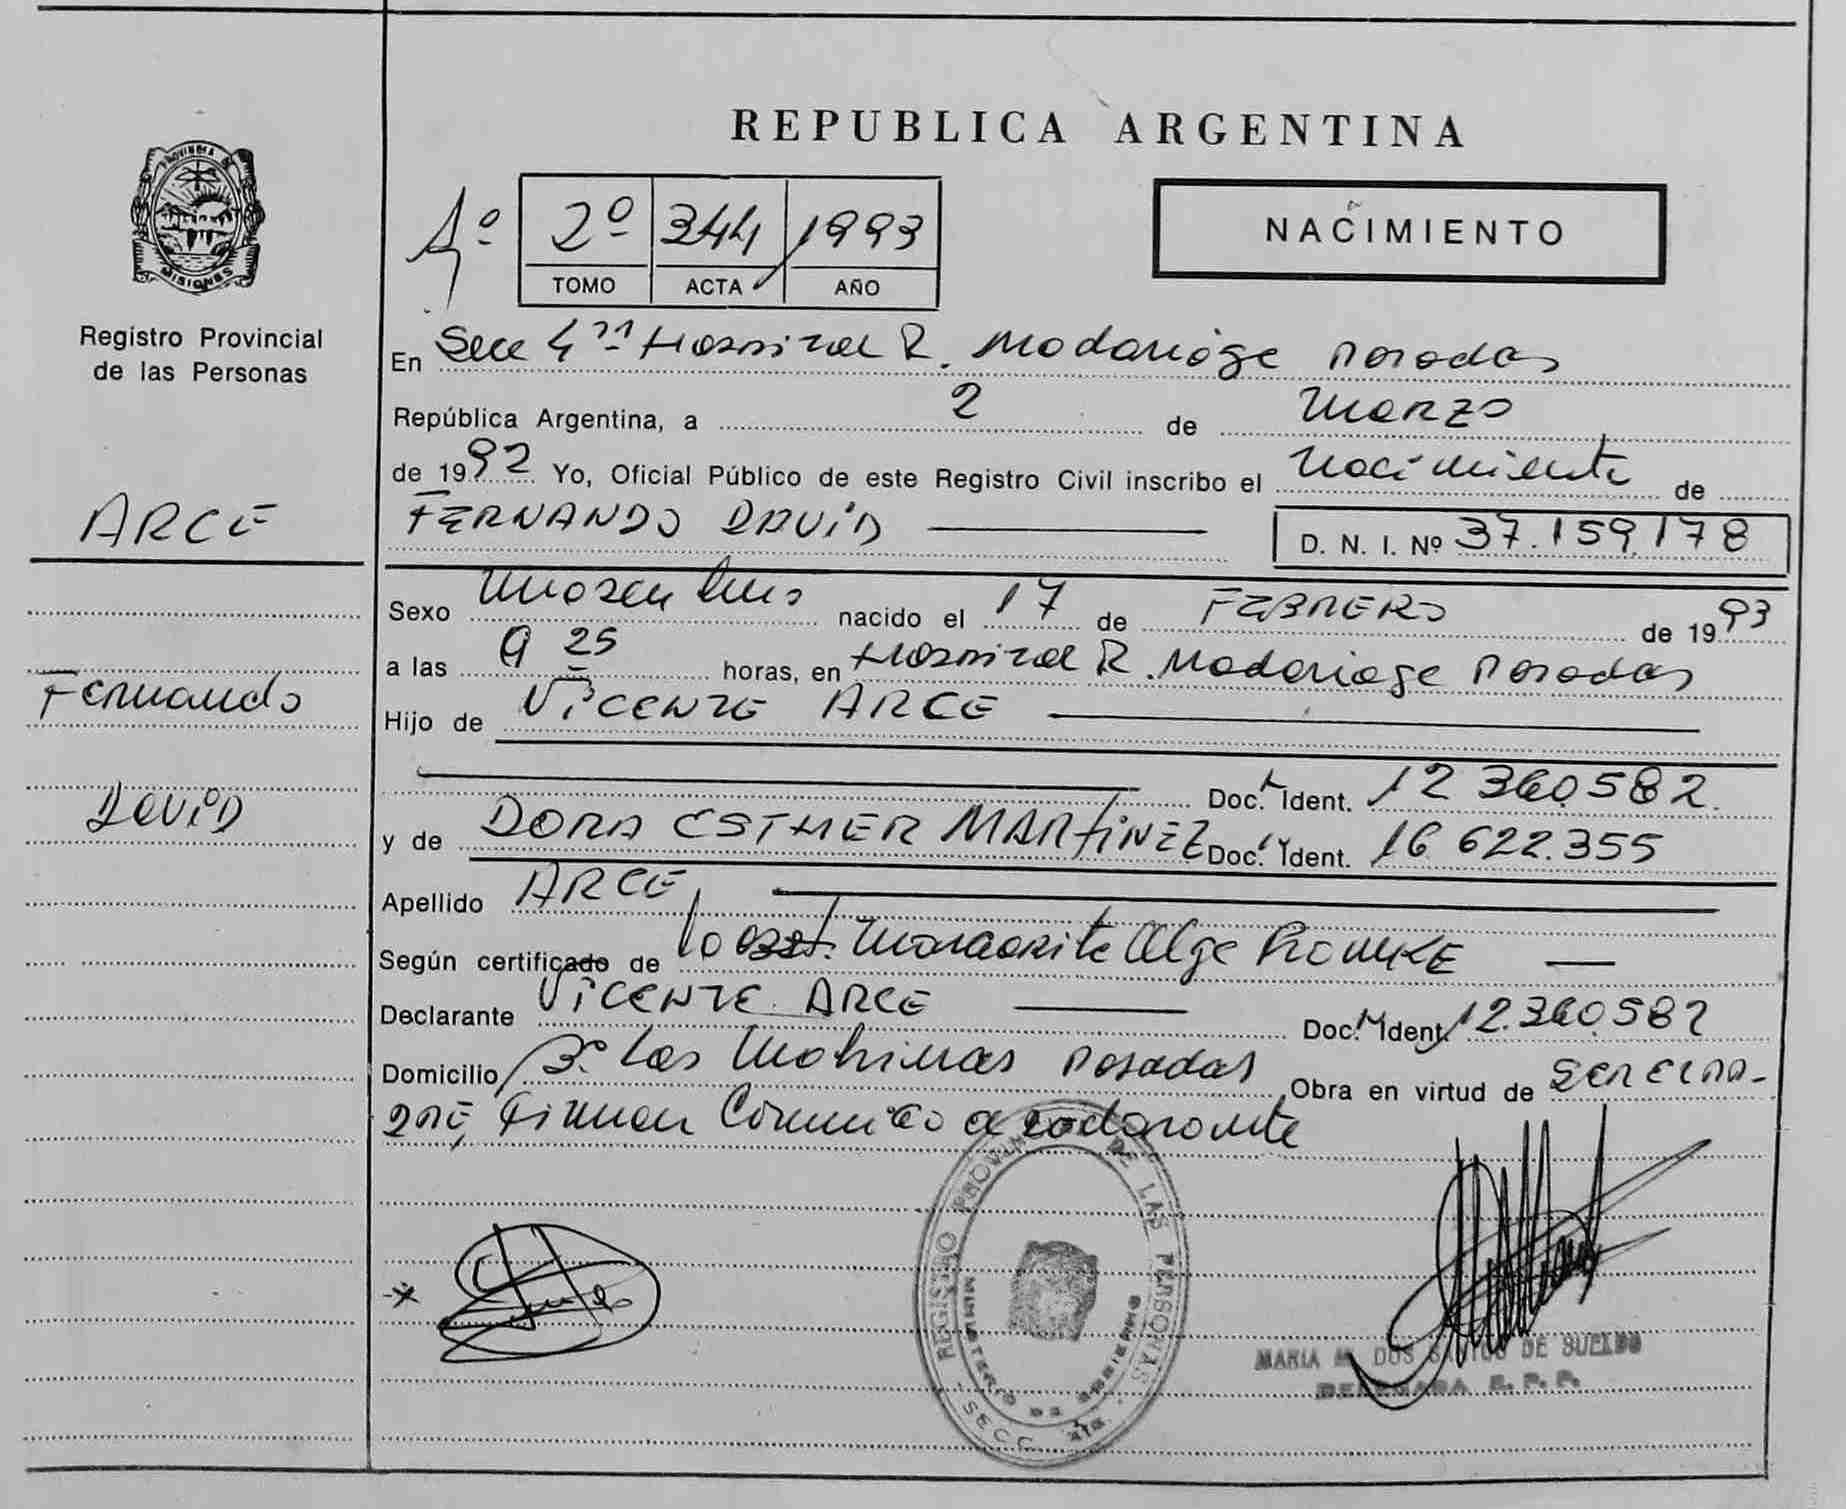 REPUBLICA ARGENTINA
PROVINCIA DE
MISIONES
Registro Provincial
de las Personas
2º 344 1993
TOMO ACTA AÑO
NACIMIENTO
En Secc 4ª Hospital R. Madariaga Posadas
República Argentina, a 2 de Marzo
de 1992 Yo, Oficial Público de este Registro Civil inscribo el Nacimiento de
ARCE
FERNANDO DAVID D. N. I. Nº 37.159.178
Sexo Masculino nacido el 17 de FEBRERO de 1993
a las 9 25 horas, en Hospital R. Madariaga Posadas
Fernando
Hijo de VICENTE ARCE
Doc. Ident. 12 360.582.
David
y de DORA ESTHER MARTINEZ Doc. Ident. 16 622.355
Apellido ARCE
Según certificado de la obst. Margarita Olga
Declarante VICENTE ARCE Doc. Ident. 12.360.582
Domicilio Bº Las Malvinas Posadas Obra en virtud de
Firman Conmigo declarante
REGISTRO PROVINCIAL DE LAS PERSONAS
MINISTERIO DE GOBIERNO
SECC. 4ta.
MARIA M. DOS SANTOS DE SUELDO
DELEGADA R. P. P.